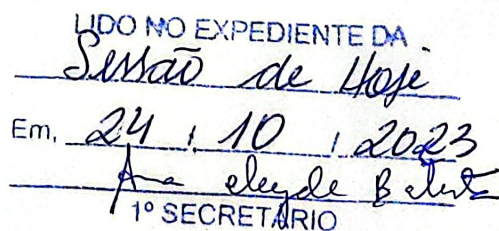 LIDO NO EXPEDIENTE DA
Sessão de Hoje
Em, 24 / 10 / 2023
Ana Batista
1º SECRETÁRIO